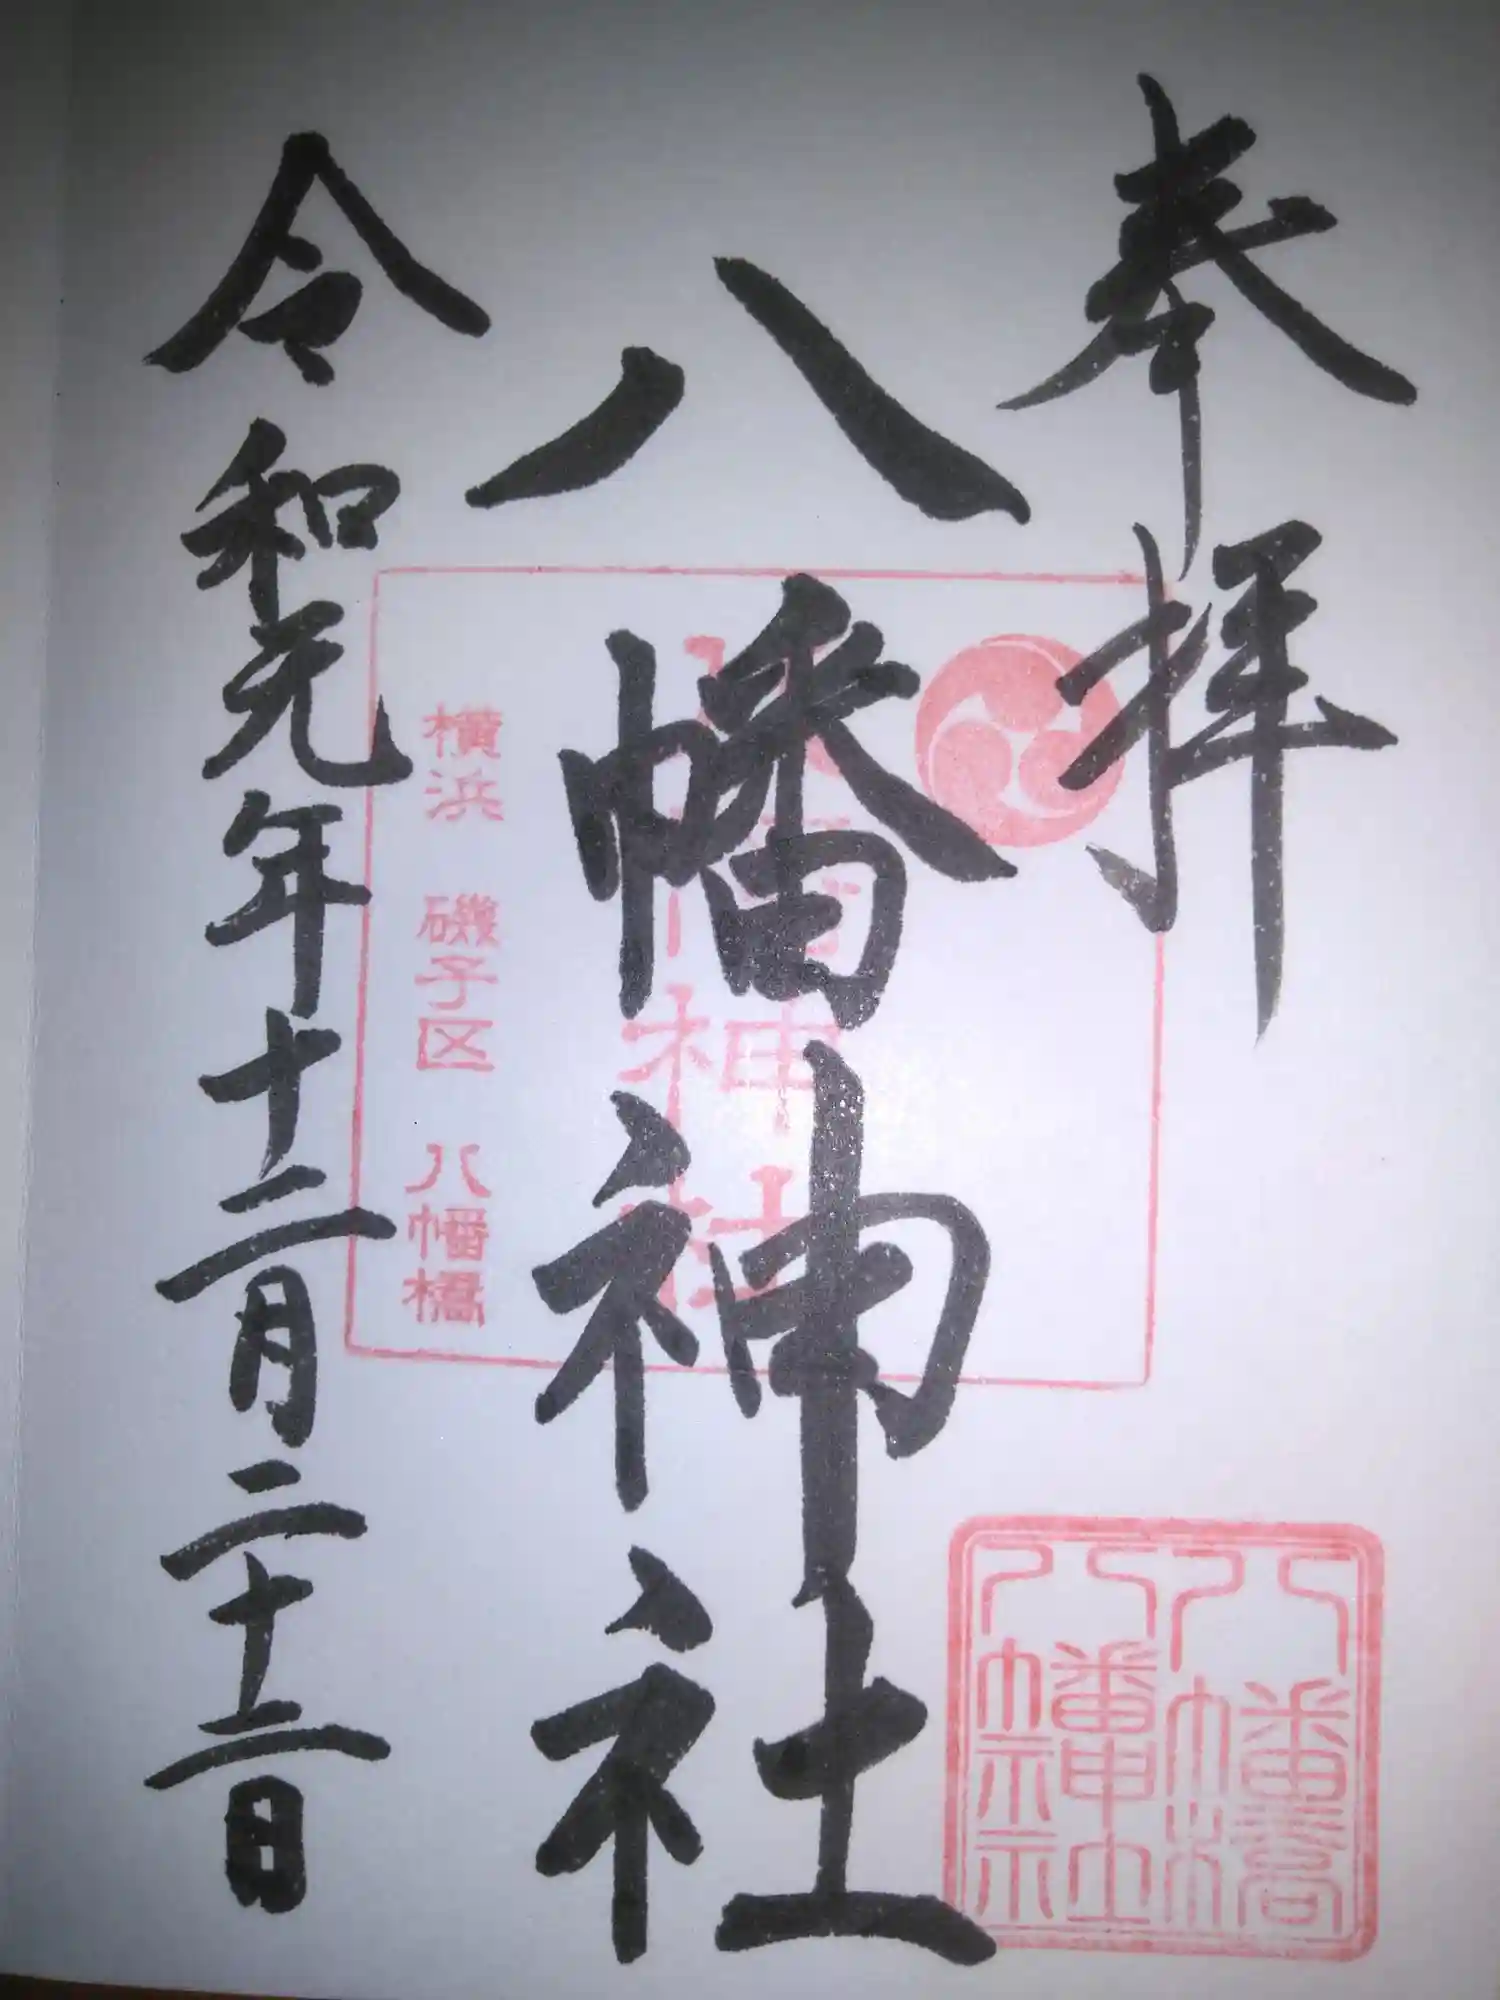 奉拝
八幡神社
八幡神社
横浜 磯子区 八幡橋
令和元年十二月二十二日
八幡橋
八幡神社